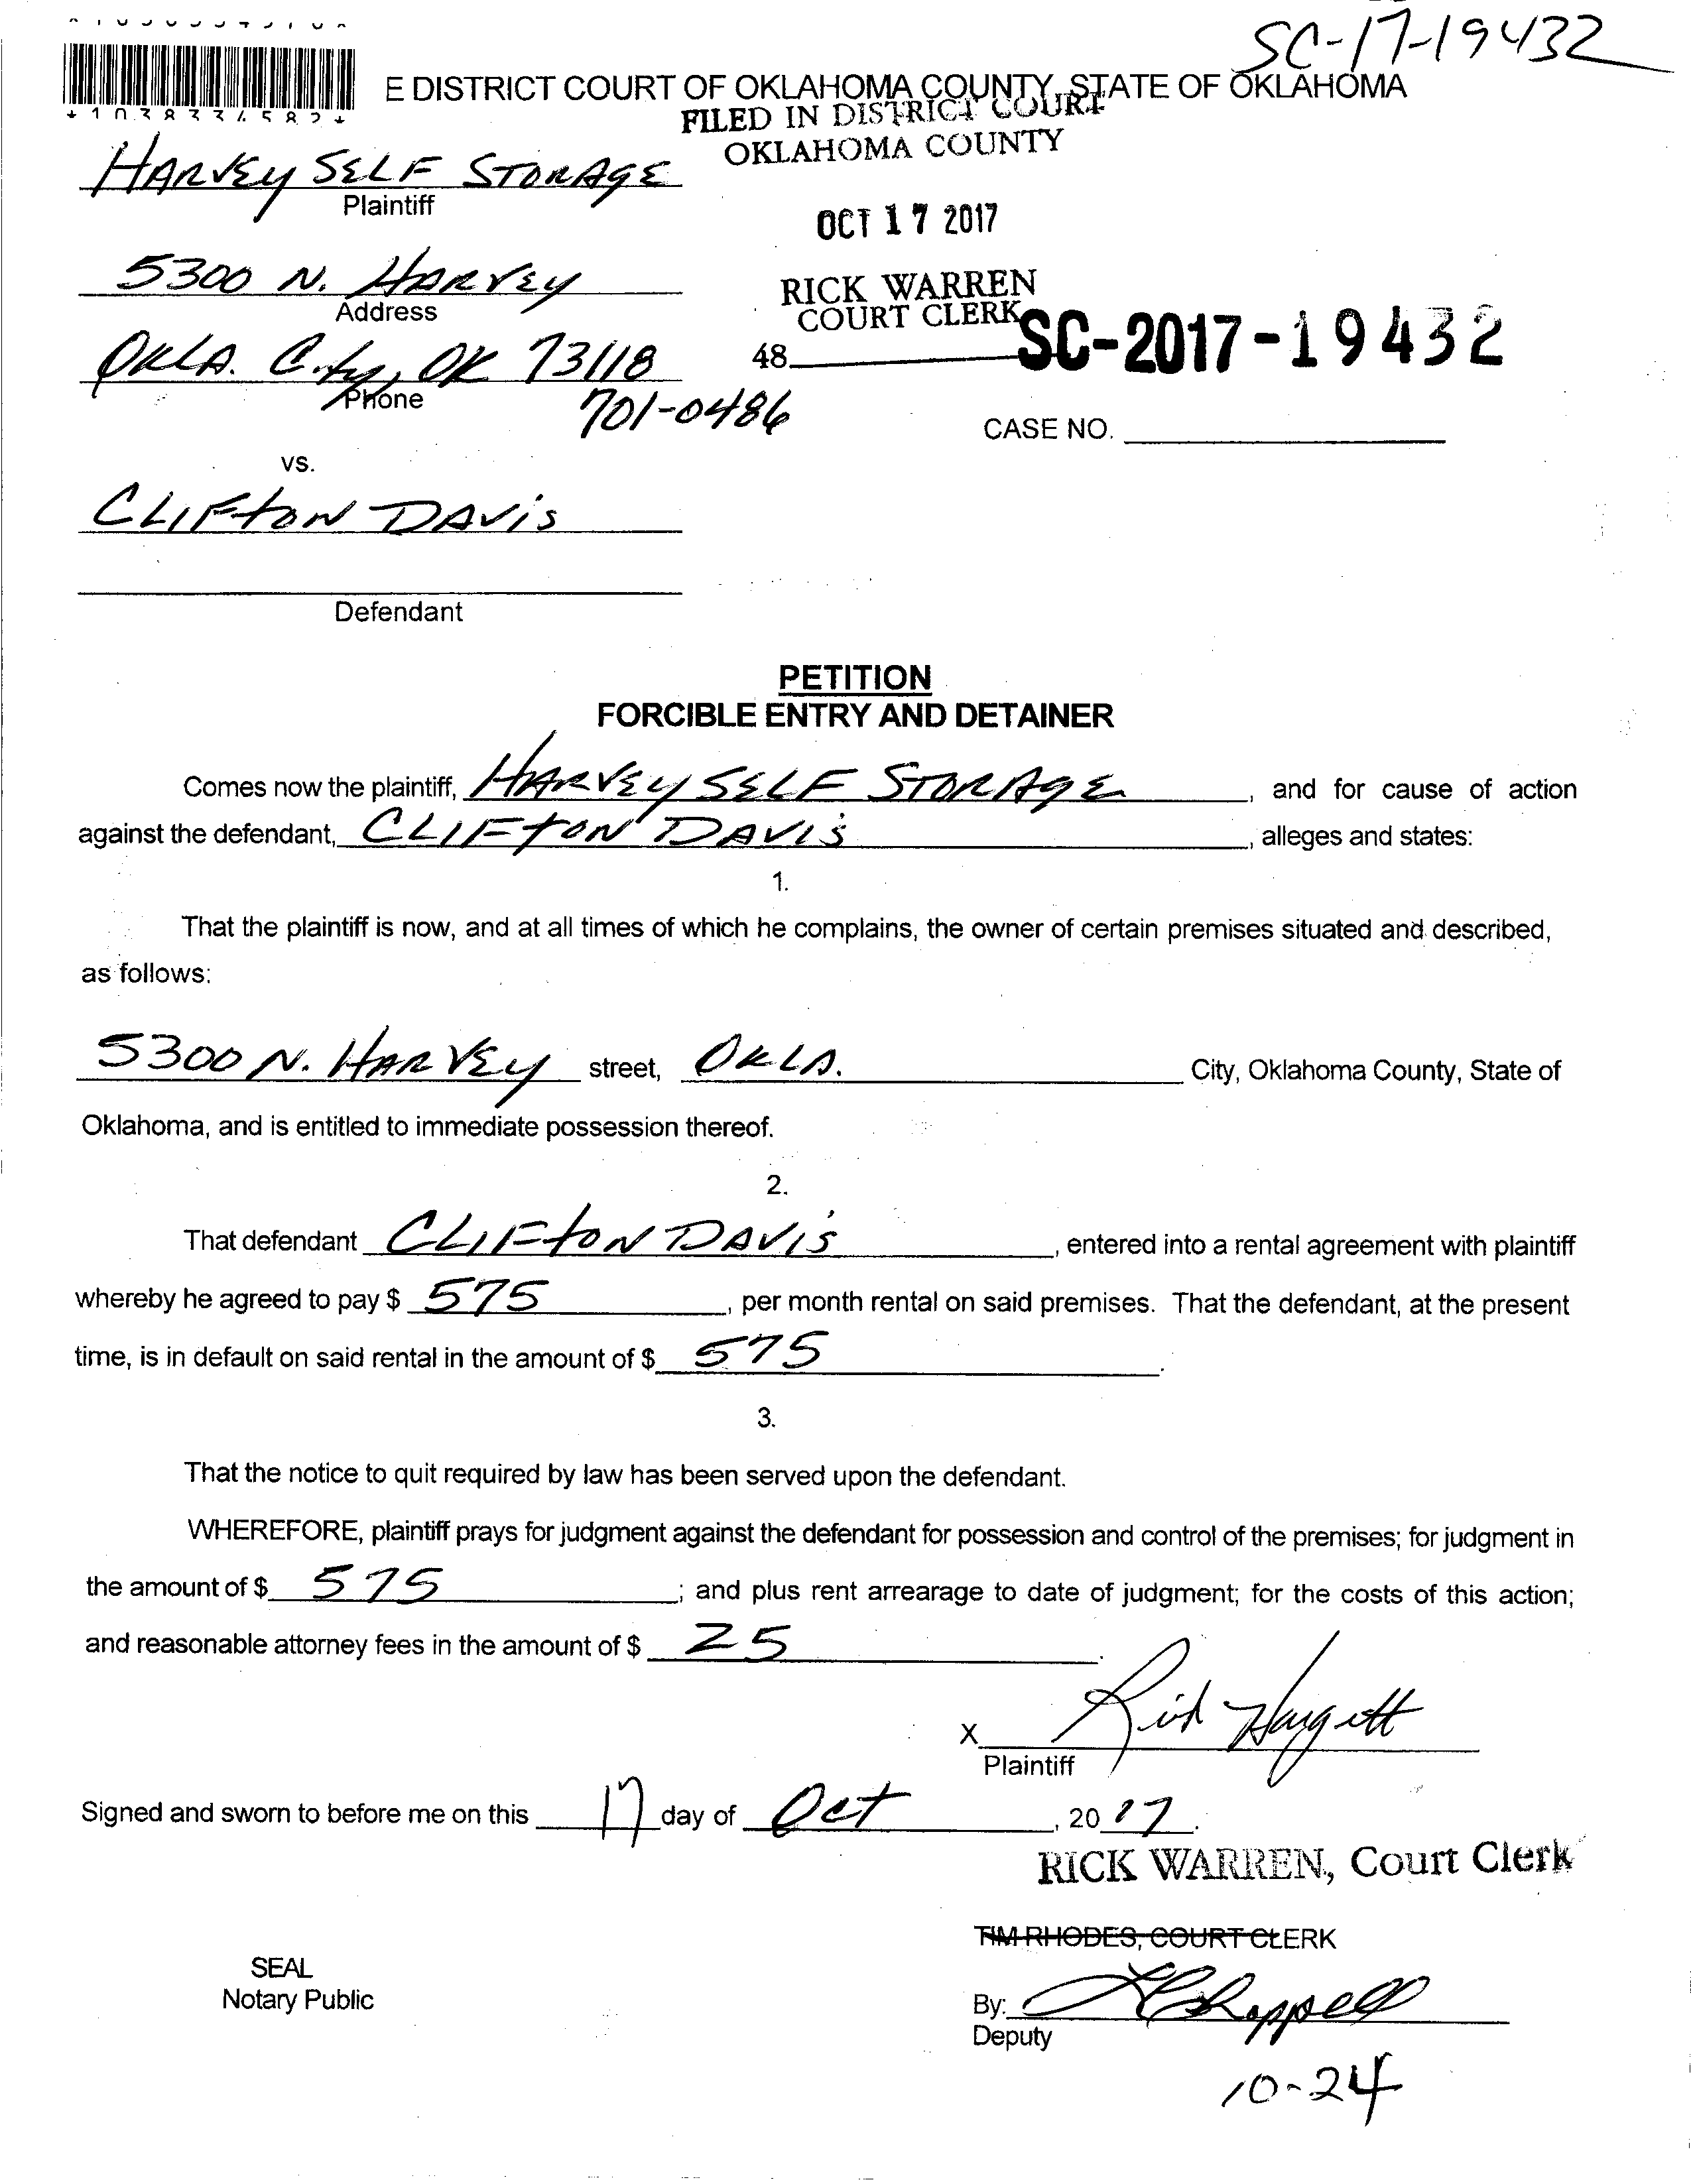 SC-17-19432
E DISTRICT COURT OF OKLAHOMA COUNTY, STATE OF OKLAHOMA
FILED IN DISTRICT COURT
OKLAHOMA COUNTY
HARVEY SELF STORAGE
Plaintiff
OCT 17 2017
5300 N. HARVEY
Address
RICK WARREN
COURT CLERK
OKLA. City, OK 73118
Phone
701-0486
48 SC-2017-19432
CASE NO.
vs.
CLIFTON DAVIS
Defendant
PETITION
FORCIBLE ENTRY AND DETAINER
Comes now the plaintiff, HARVEY SELF STORAGE, and for cause of action
against the defendant, CLIFTON DAVIS, alleges and states:
1.
That the plaintiff is now, and at all times of which he complains, the owner of certain premises situated and described,
as follows:
5300 N. HARVEY street, OKLA. City, Oklahoma County, State of
Oklahoma, and is entitled to immediate possession thereof.
2.
That defendant CLIFTON DAVIS, entered into a rental agreement with plaintiff
whereby he agreed to pay $ 575, per month rental on said premises. That the defendant, at the present
time, is in default on said rental in the amount of $ 575.
3.
That the notice to quit required by law has been served upon the defendant.
WHEREFORE, plaintiff prays for judgment against the defendant for possession and control of the premises; for judgment in
the amount of $ 575; and plus rent arrearage to date of judgment; for the costs of this action;
and reasonable attorney fees in the amount of $ 25.
X
Plaintiff
Signed and sworn to before me on this 17 day of Oct, 20 17.
RICK WARREN, Court Clerk
TIM RHODES, COURT CLERK
SEAL
Notary Public
By:
Deputy
10-24